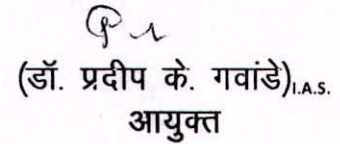 (डॉ. प्रदीप के. गवांडे)I.A.S.
आयुक्त